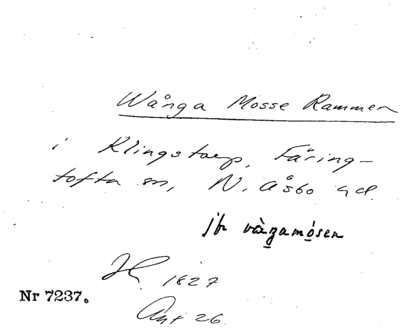 Wånga Mosse Rammen
i Klingstorp, Färing-
tofta sn, N. Åsbo hd.
jfr vàgamósen
H. 1827
Nr 7237.
Akt 26.